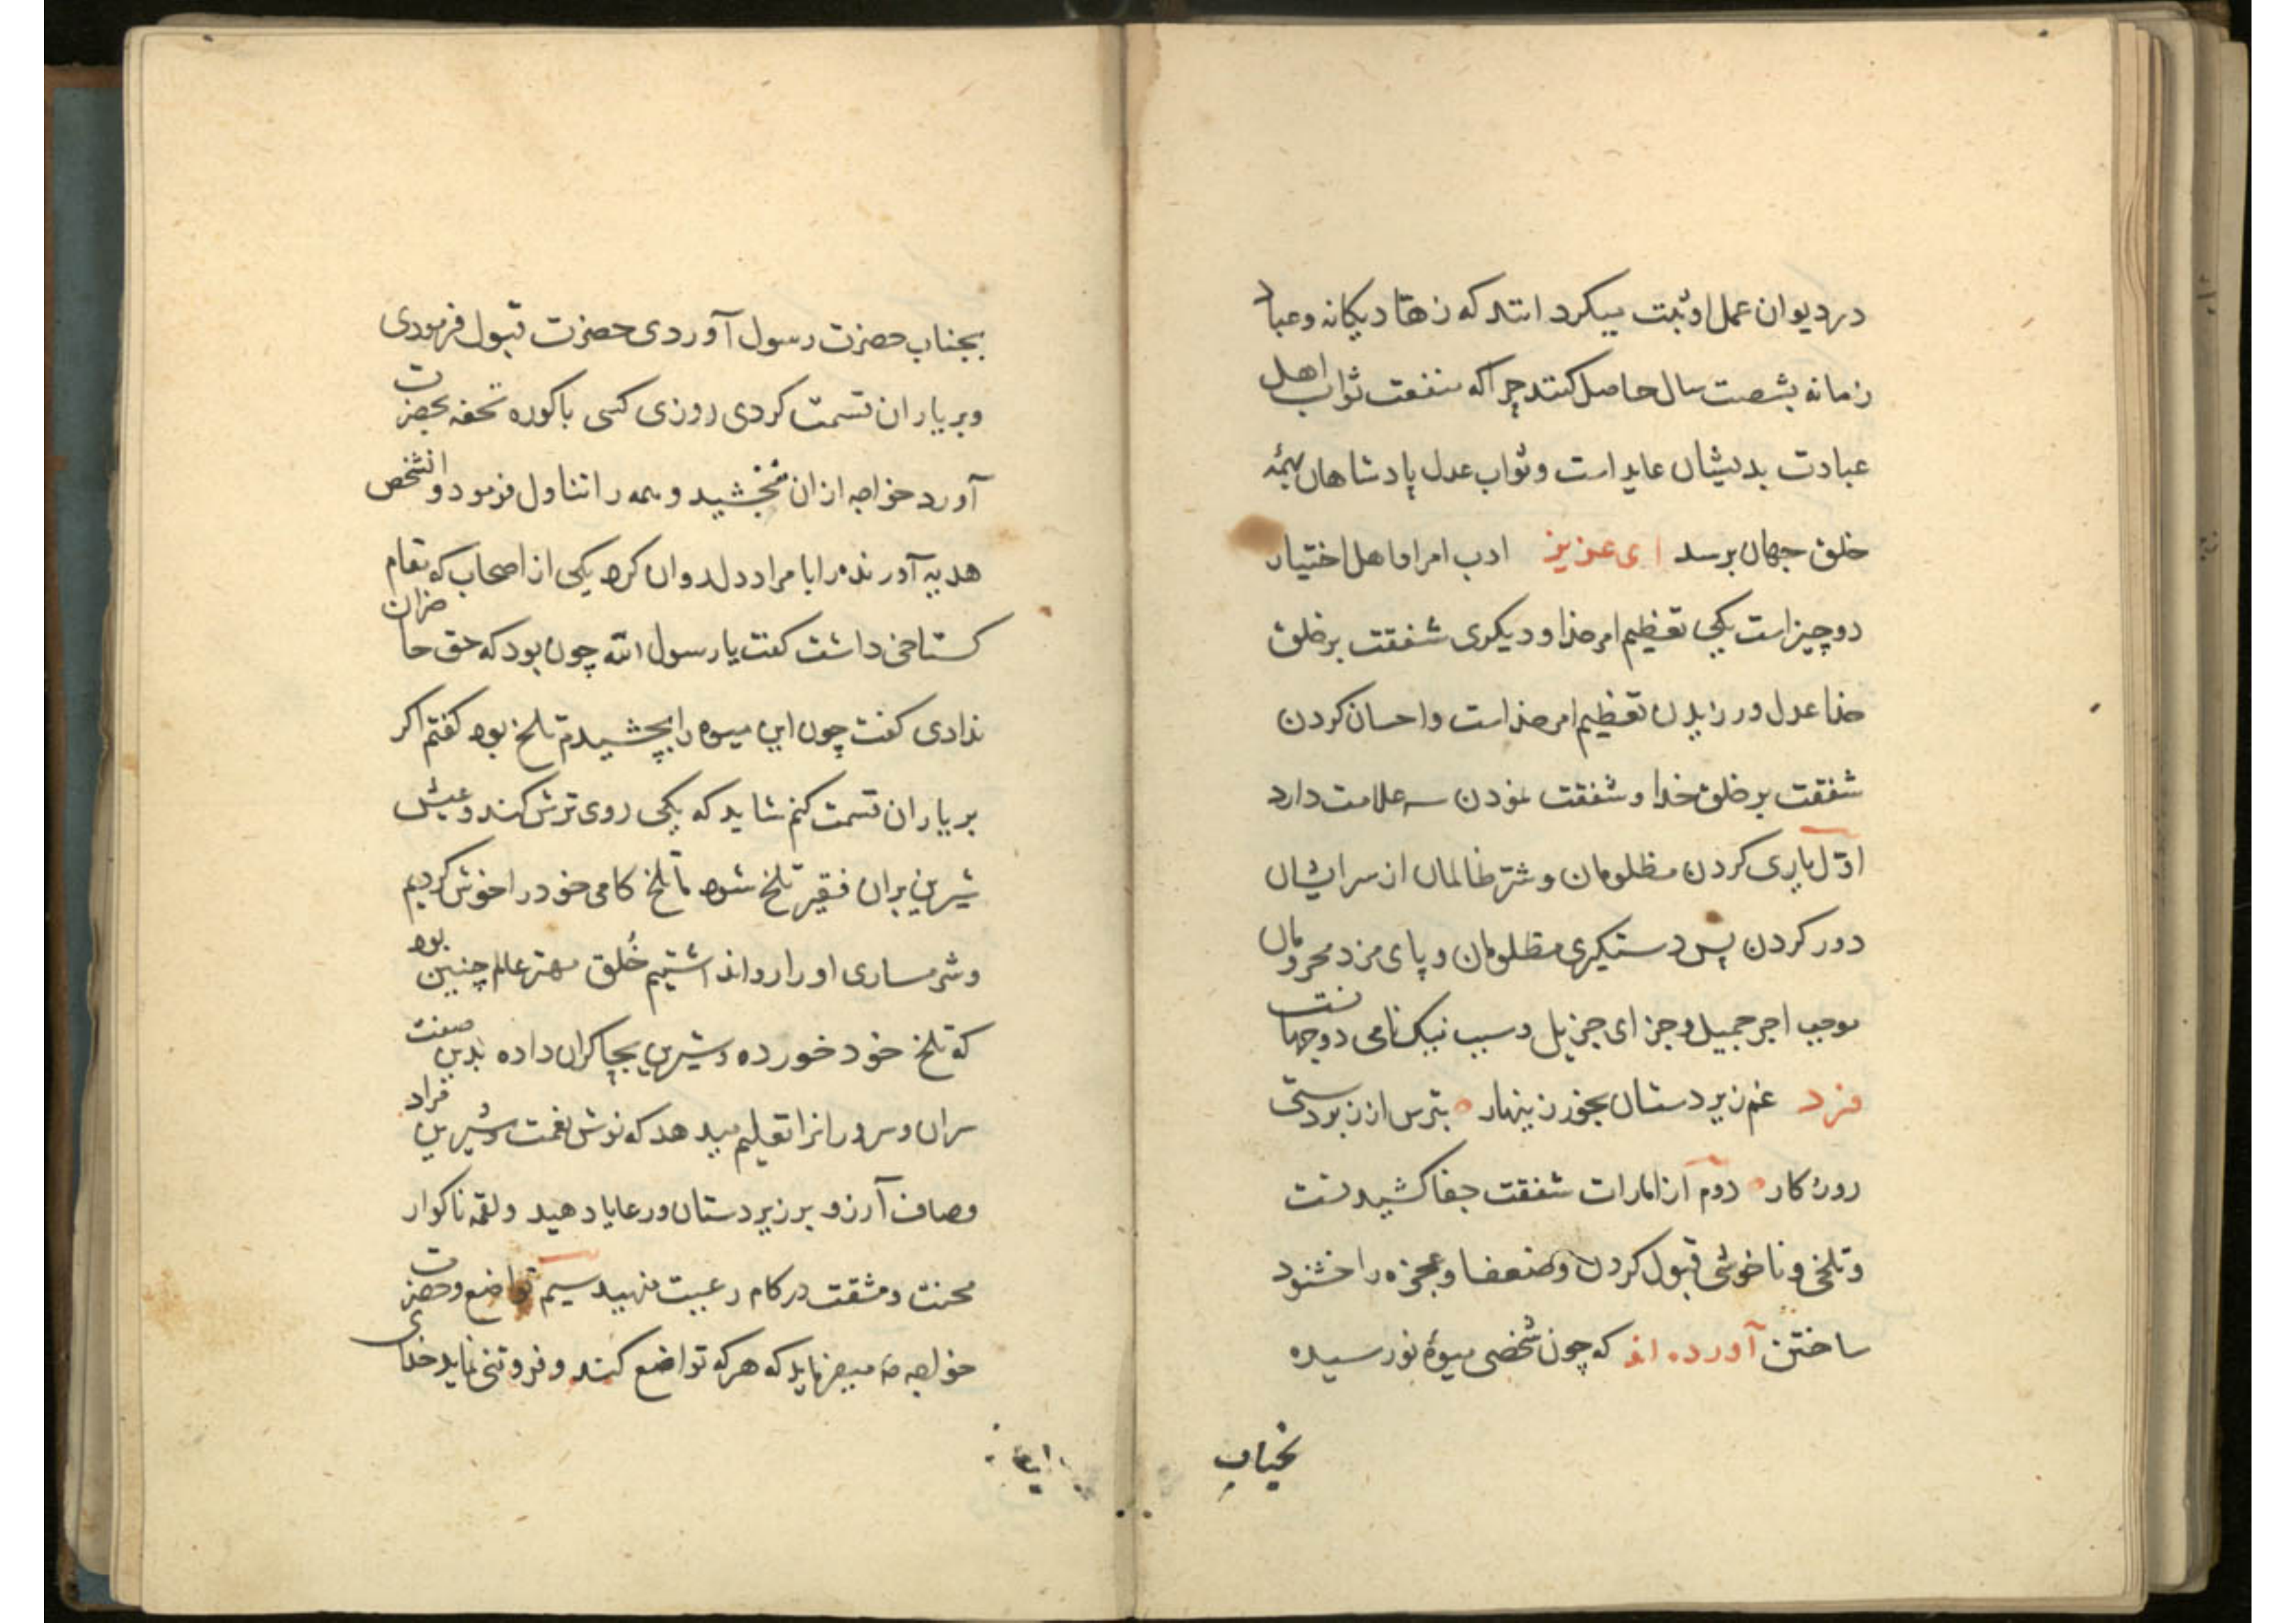 در دیوان عمل او ثبت میکرد انتد که زهاد یکانه و عباد
زمانه بشصت سال حاصل کنند چرا که منفعت ثواب اهل
عبادت بدیشان عاید است و ثواب عدل پادشاهان بهمهٔ
خلق جهان برسد ای عزیز ادب امرا و اهل اختیار
دو چیز است یکی تعظیم امر خدا و دیکری شفقت بر خلق
خدا عدل ورزیدن تعظیم امر خداست و احسان کردن
شفقت بر خلق خدا و شفقت نمودن سه علامت دارد
اوّل یاری کردن مظلومان و شرّ ظالمان از سر ایشان
دور کردن پس دستکیری مظلومان و پای مزد محرومان
موجب اجر جمیل و جزای جزیل و سبب نیک نامی دو جهانست
فرد غم زیردستان بخور زینهار بترس از زبردستی
روزکار دوم از امارات شفقت جفا کشیدنست
و تلخی و ناخوشی قبول کردن و ضعفا و عجزه را خشنود
ساختن آورده اند که چون شخصی میوهٔ نورسیده
بجناب
بجناب حضرت رسول آوردی حضرت قبول فرمودی
و بر یاران قسمت کردی روزی کسی باکوره تحفه بحضرت
آورد خواجه ازان نبخشید و همه را تناول فرمود و انشخص
هدیه آورنده را با مراد دل روان کرد یکی از اصحاب که مقام
کستاخی داشت کفت یا رسول الله چون بود که حق حاضران
ندادی کفت چون این میوه را بچشیدم تلخ بود کفتم اکر
بر یاران قسمت کنم شاید که یکی روی ترش کند و عیش
شیرین بران فقیر تلخ شود ما تلخ کامی خود را خوش کردیم
و شرمساری او را روا نداشتیم خُلق مهتر عالم چنین بود
که تلخ خود خورده و شیرین بچاکران داده بدین صفت
سران و سرورانرا تعلیم میدهد که نوش نعمت و شیرین مراد
و صاف آرزو بر زیردستان و رعایا دهید و لقمه ناکوار
محنت و مشقت در کام رعیت منهید سیم تواضع و حضرت
خواجه صه میفرماید که هر که تواضع کند و فروتنی نماید خدای